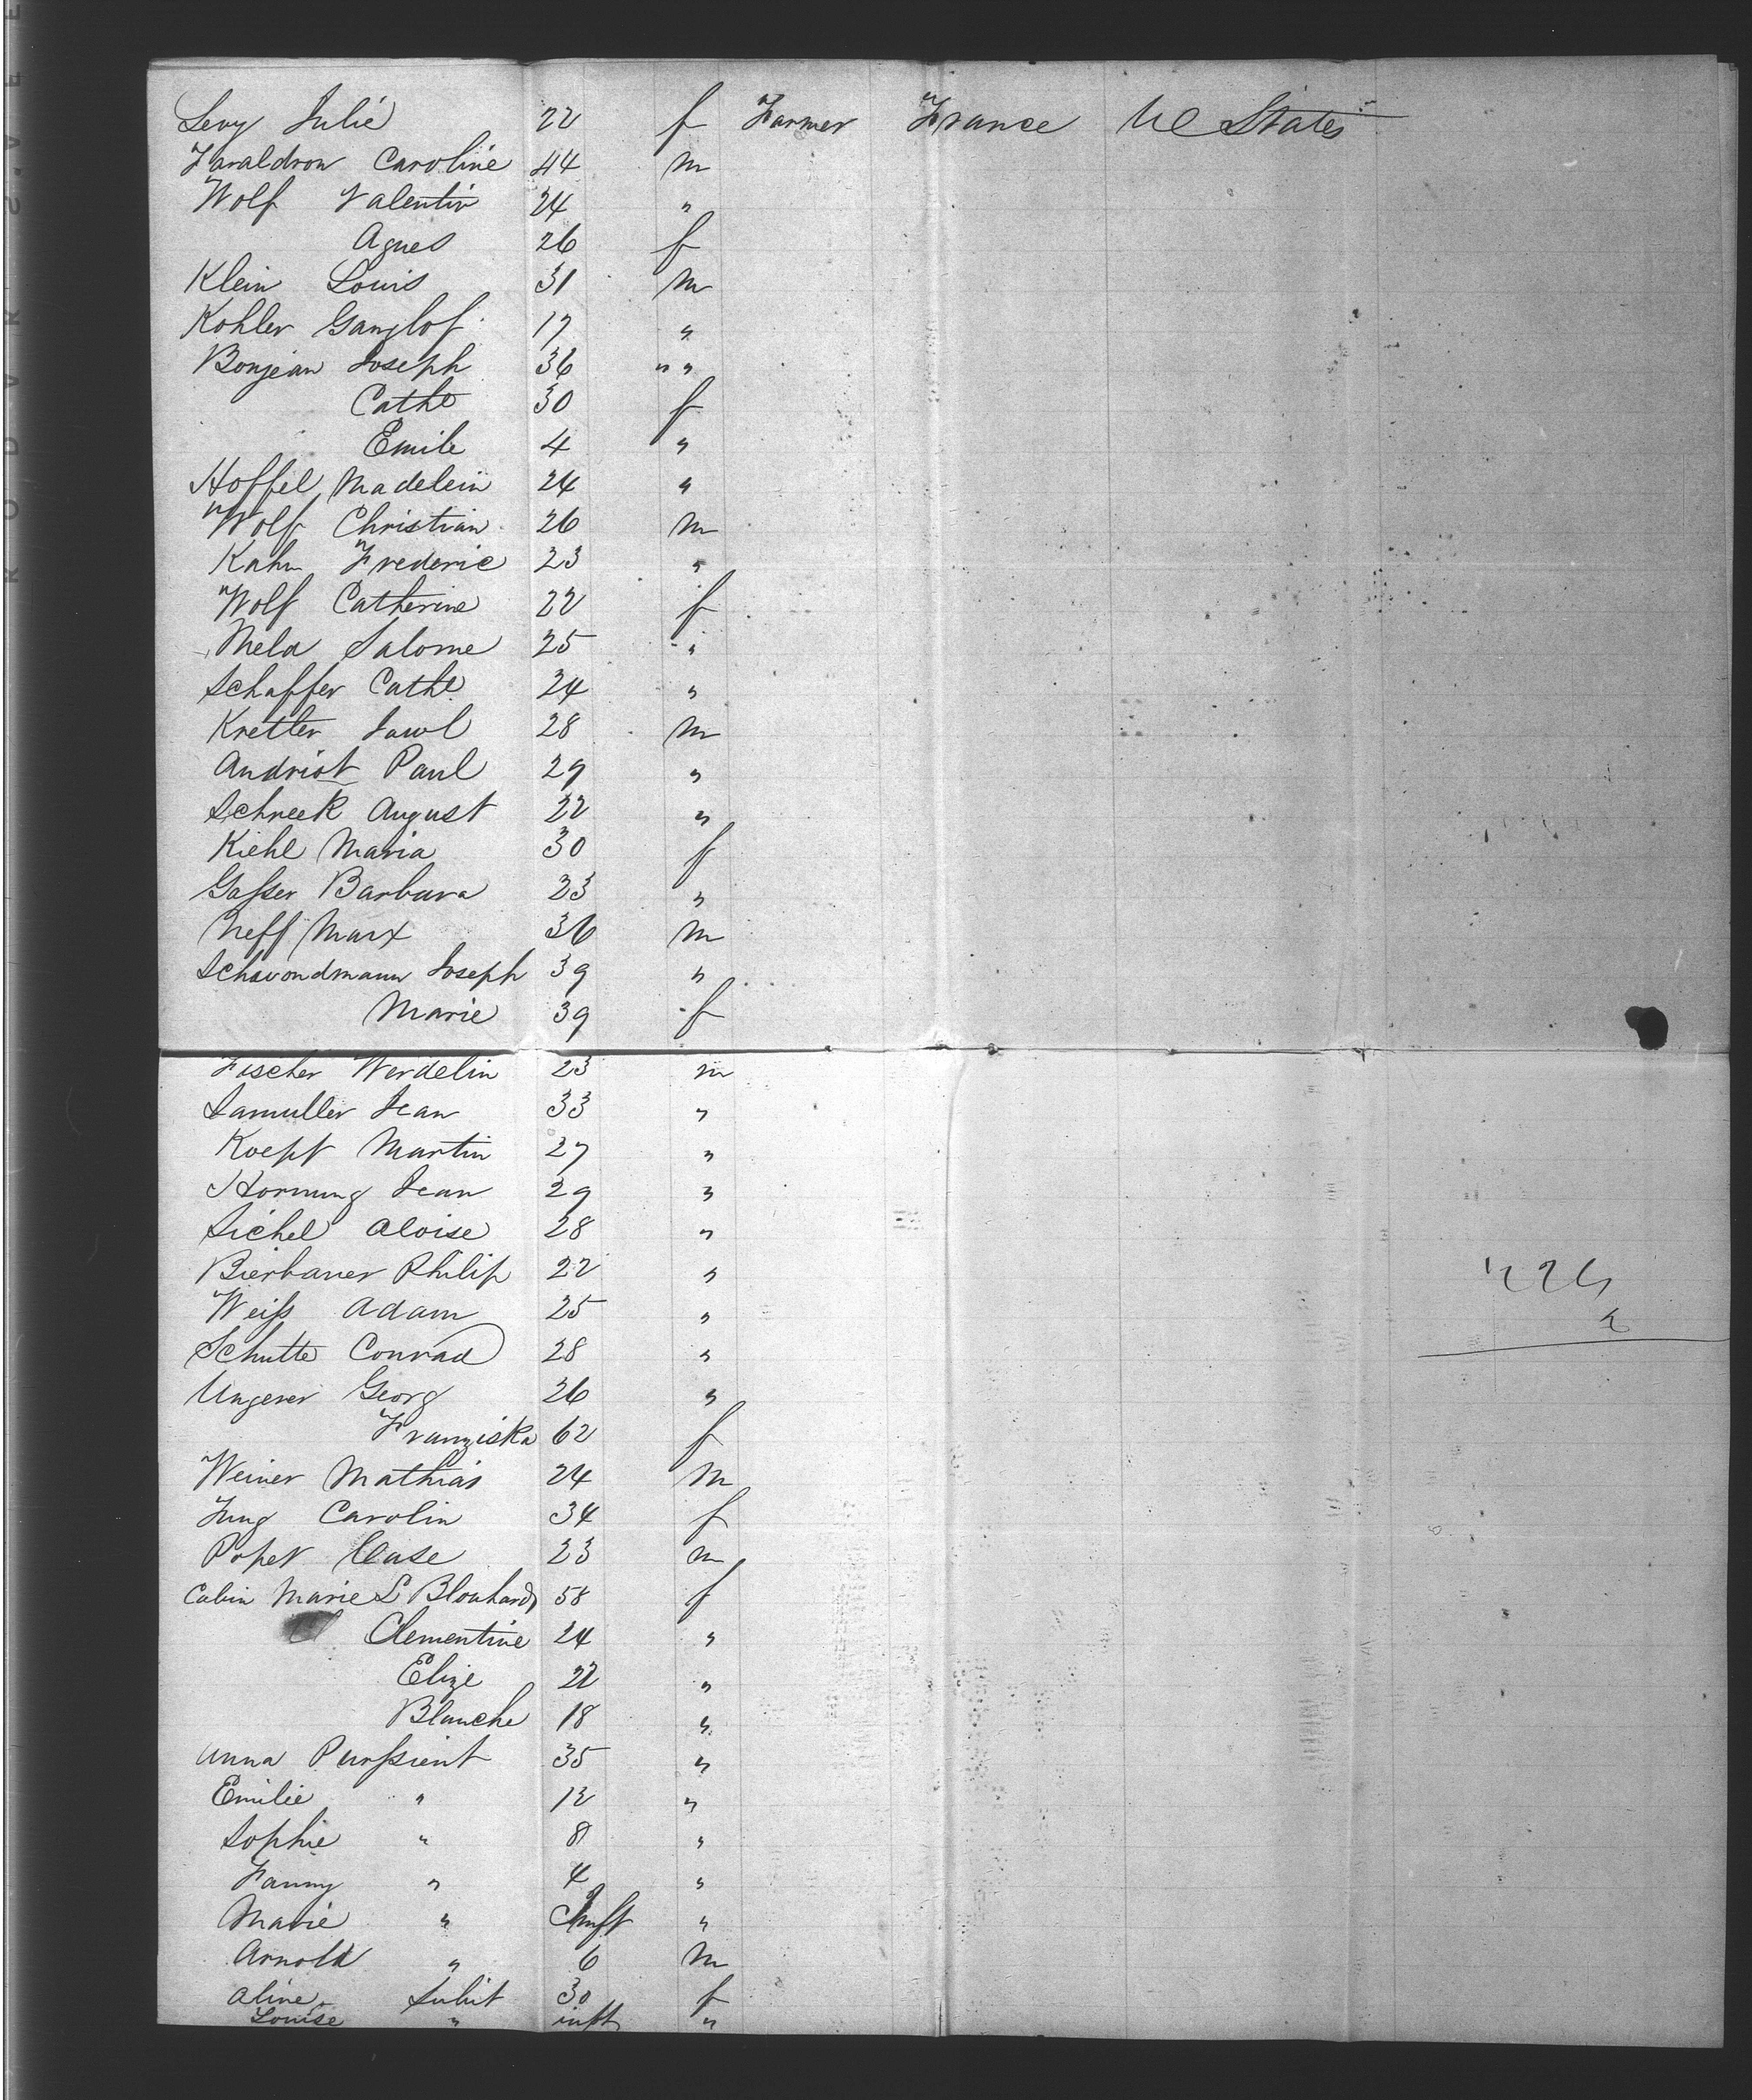 Levy Julie 22 f Farmer France U States
Faraldron Caroline 44 m
Wolf Valentin 24 "
Agnes 26 f
Klein Louis 31 m
Kohler Ganglof 17 "
Bonjean Joseph 36 " "
Cathe 30 f
Emile 4 "
Hoffel Madelein 24 "
Wolf Christian 26 m
Kahn Frederic 23 "
Wolf Catherine 22 f
Mela Salome 25 "
Schaffer Cathe 24 "
Kretter 28 m
Andriot Paul 29 "
Schreek August 22 "
Kiehl Maria 30 f
Gasser Barbara 23 "
Neff Marx 36 m
Schwondmann Joseph 39 "
Marie 39 f
Fischer Werdelin 23 m
Lamuller Jean 33 "
Koept Martin 27 "
Hornung Jean 29 "
Sichel Aloise 28 "
Bierbauer Philip 22 "
Weiss Adam 25 "
Schutte Conrad 28 "
Ungerer Georg 26 "
Franziska 62 f
Weiner Mathias 24 m
Jung Carolin 34 f
Popet 23 m
Cabin Marie L Blouhard 58 f
Clementine 24 "
Elize 22 "
Blanche 18 "
Anna Purssient 35 "
Emilie " 12 "
Sophie " 8 "
Fanny " 4 "
Marie " Inft "
Arnold " 6 m
Aline Subit 30 f
Louise " inft "